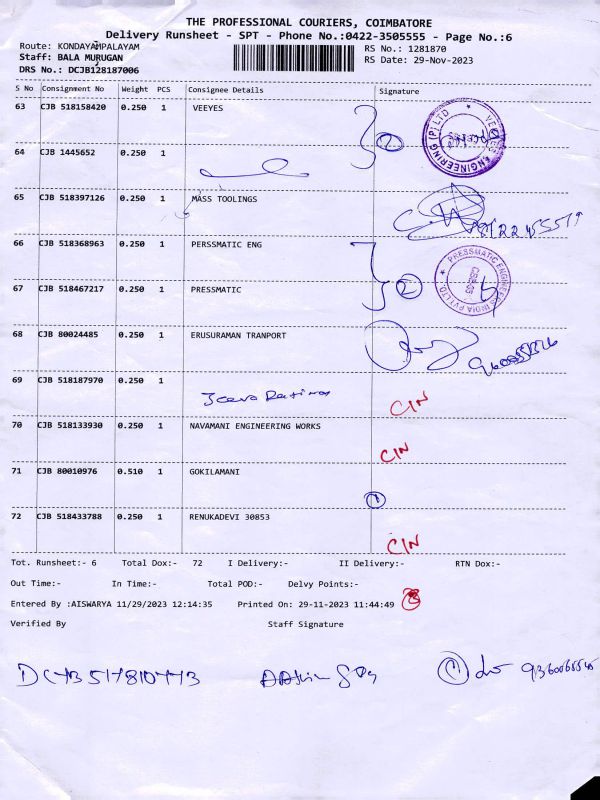 THE PROFESSIONAL COURIERS, COIMBATORE
Delivery Runsheet - SPT - Phone No.:0422-3505555 - Page No.:6
Route: KONDAYAMPALAYAM RS No.: 1281870
Staff: BALA MURUGAN RS Date: 29-Nov-2023
DRS No.: DCJB128187006
S No Consignment No Weight PCS Consignee Details Signature
63 CJB 518158420 0.250 1 VEEYES
2
ENGINEERING (P) LTD
64 CJB 1445652 0.250 1
65 CJB 518397126 0.250 1 MASS TOOLINGS
66 CJB 518368963 0.250 1 PERSSMATIC ENG
PRESSMATIC ENGINEERS INDIA PVT LTD
67 CJB 518467217 0.250 1 PRESSMATIC
2
68 CJB 80024485 0.250 1 ERUSURAMAN TRANPORT
69 CJB 518187970 0.250 1
C/N
70 CJB 518133930 0.250 1 NAVAMANI ENGINEERING WORKS
C/N
71 CJB 80010976 0.510 1 GOKILAMANI
1
72 CJB 518433788 0.250 1 RENUKADEVI 30853
C/N
Tot. Runsheet:- 6 Total Dox:- 72 I Delivery:- II Delivery:- RTN Dox:-
Out Time:- In Time:- Total POD:- Delvy Points:-
Entered By :AISWARYA 11/29/2023 12:14:35 Printed On: 29-11-2023 11:44:49
Verified By Staff Signature
1